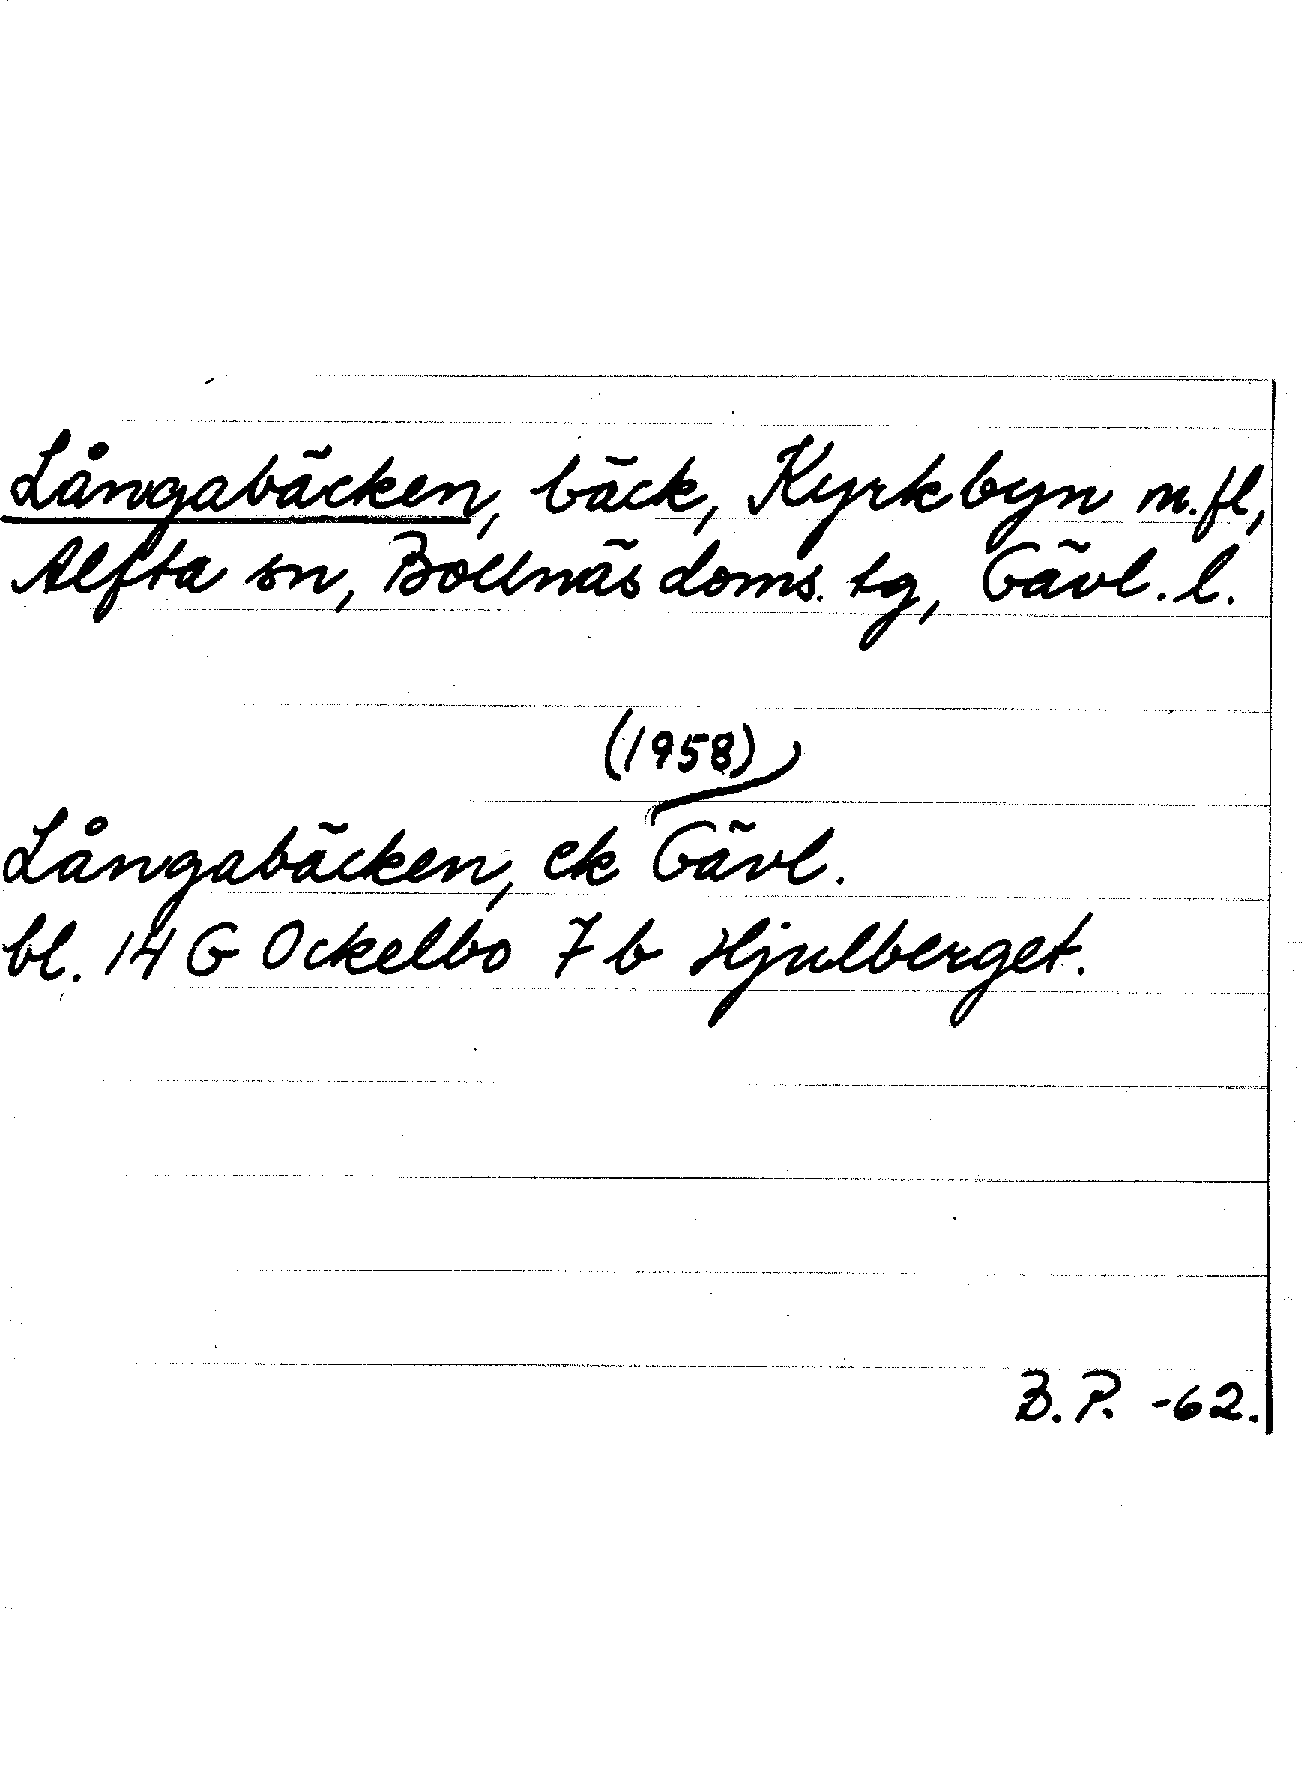 Långabäcken, bäck, Kyrkbyn m.fl,
Alfta sn, Bollnäs doms. tg, Gävl. l.
(1958)
Långabäcken, ek Gävl.
bl. 14 G Ockelbo 7 b Hjulberget.
B. P. -62.